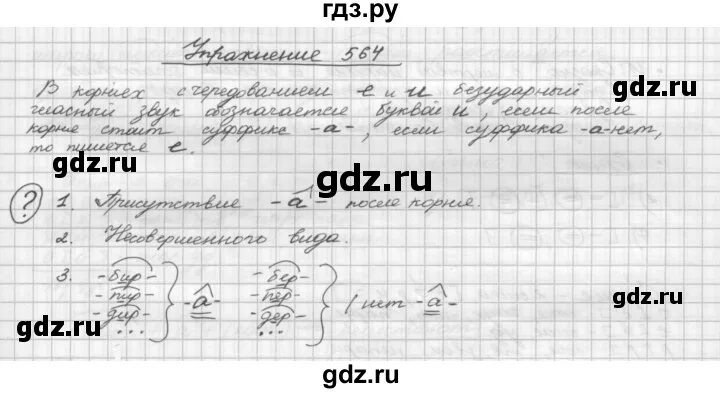 гдз.ру
Упражнение 564
В корнях с чередованием е и и безударный
гласный звук обозначается буквой и, если после
корня стоит суффикс -а-, если суффикса -а- нет,
то пишется е.
gdz.ru gdz.ru
? 1. Присутствие -а- после корня.
gdz.ru
2. Несовершенного вида.
3. -бир- -бер-
-пир- } -а- -пер- } / нет -а-
-дир- -дер-
... ...
gdz.ru gdz.ru
gdz.ru
gdz.ru